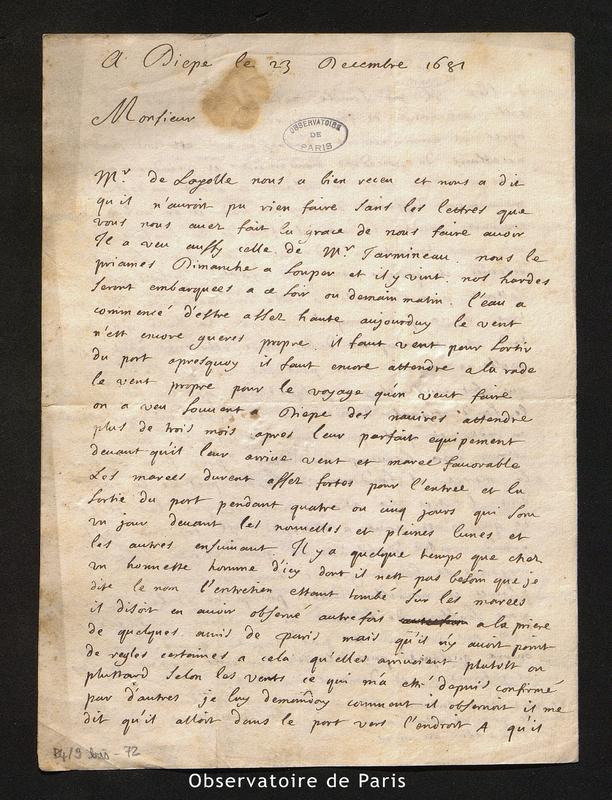 A Diepe le 23 Decembre 1681
Monsieur
OBSERVATOIRE
DE
PARIS
Mr de Layolle nous a bien receu et nous a dit
qu il n'auroit pu rien faire sans les lettres que
vous nous avez fait la grace de nous faire avoir
Il a veu aussy celle de Mr Jarmineau. nous le
priames Dimanche a souper et il y vint. nos hardes
seront embarquees a ce soir ou demain matin. l'eau a
commencé d'estre assez haute aujourduy le vent
n'est encore gueres propre. il faut vent pour sortir
du port apresquoy il faut encore attendre a la rade
le vent propre pour le voyage qu'on veut faire
on a veu souvent a Diepe des navires attendre
plus de trois mois apres leur parfait equipement
devant qu'il leur arrive vent et maree favorable
Les marees durent assez fortes pour l'entree et la
sortie du port pendant quatre ou cinq jours qui sont
un jour devant les nouvelles et pleines lunes et
les autres ensuivant. Il y a quelque temps que chez
un honneste homme d'icy dont il nest pas besoin que je
dise le nom l'entretien estant tombé sur les marees
il disoit en avoir observé autrefois a la priere
de quelques amis de paris mais qu'il n'y avoit point
de regles certaines a cela qu'elles arrivoient plutost ou
plustard selon les vents ce qui m'a esté depuis confirmé
par d'autres je luy demanday comment il observoit il me
dit qu'il alloit dans le port vers l'endroit A qu'il
B4/9 bis - 72
Observatoire de Paris